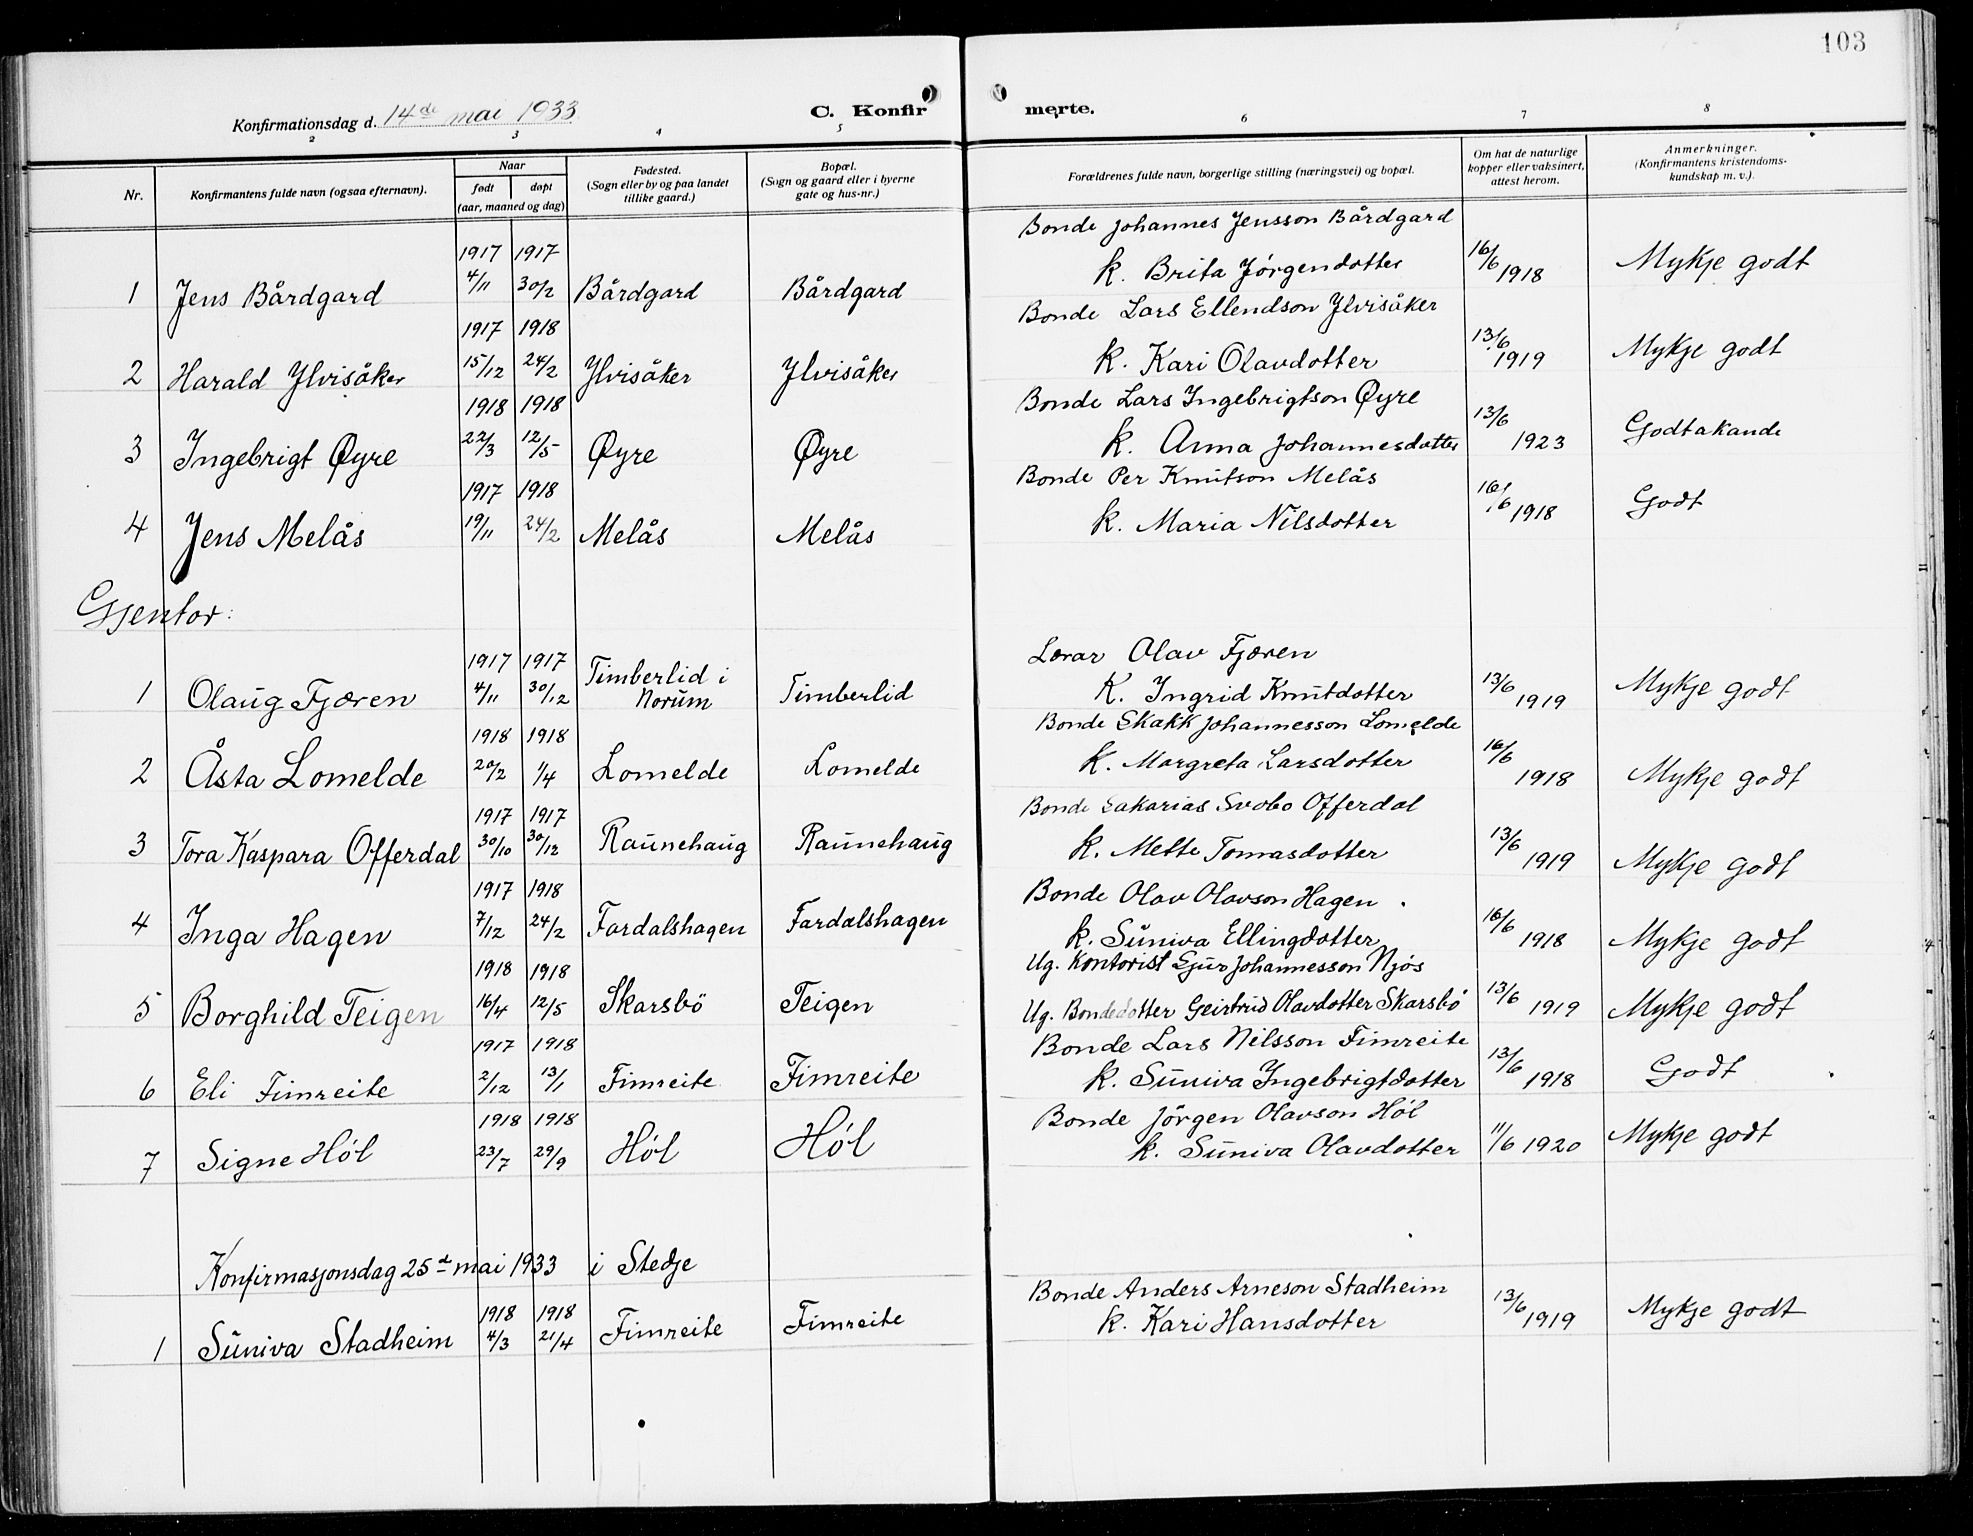 103
Konfirmationsdag d. 14de mai 1933
C. Konfirmerte.
2 3 4 5 6 7 8
Nr.
Konfirmantens fulde navn (ogsaa efternavn).
Naar
født døpt
(aar, maaned og dag)
Fødested.
(Sogn eller by og paa landet
tillike gaard.)
Bopæl.
(Sogn og gaard eller i byerne
gate og hus-nr.)
Forældrenes fulde navn, borgerlige stilling (næringsvei) og bopæl.
Om hat de naturlige
kopper eller vaksinert,
attest herom.
Anmerkninger.
(Konfirmantens kristendoms-
kundskap m. v.).
Bonde Johannes Jensson Bårdgard
1917 1917
1 Jens Bårdgard 4/11 30/2 Bårdgard Bårdgard k. Brita Jörgendotter 16/6 1918 Mykje godt
Bonde Lars Ellendson Ylvisåker
1917 1918
2 Harald Ylvisåker 15/12 24/2 Ylvisåker Ylvisåker k. Kari Olavdotter 13/6 1919 Mykje godt
Bonde Lars Ingebrigtson Øyre
1918 1918
3 Ingebrigt Øyre 22/3 12/5 Øyre Øyre k. Anna Johannesdotter 13/6 1923 Godtakande
Bonde Per Knutson Melås
1917 1918
4 Jens Melås 19/11 24/2 Melås Melås k. Maria Nilsdotter 16/6 1918 Godt
Gjentor:
Lærar Olav Fjæren
1917 1917
1 Olaug Fjæren 4/11 30/12 Timberlid i Norum Timberlid K. Ingrid Knutdotter 13/6 1919 Mykje godt
Bonde Skakk Johannesson Lomelde
1918 1918
2 Åsta Lomelde 20/2 1/4 Lomelde Lomelde k. Margreta Larsdotter 16/6 1918 Mykje godt
Bonde Sakarias Svobo Offerdal
1917 1917
3 Tora Kaspara Offerdal 30/10 30/12 Raunehaug Raunehaug k. Mette Tomasdotter 13/6 1919 Mykje godt
Bonde Olav Olavson Hagen
1917 1918
4 Inga Hagen 7/12 24/2 Fardalshagen Fardalshagen k. Suniva Ellingdotter 16/6 1918 Mykje godt
Ug. Kontorist Sjur Johannesson Njøs
1918 1918
5 Borghild Teigen 16/4 12/5 Skarsbö Teigen Ug. Bondedotter Geirtrud Olavdotter Skarsbö 13/6 1919 Mykje godt
Bonde Lars Nilsson Fimreite
1917 1918
6 Eli Fimreite 2/12 13/1 Fimreite Fimreite k. Suniva Ingebrigtdotter 13/6 1918 Godt
Bonde Jörgen Olavson Hól
1918 1918
7 Signe Hól 23/7 29/9 Hól Hól k. Suniva Olavdotter 11/6 1920 Mykje godt
Konfirmasjonsdag 25de mai 1933 i Stedje
Bonde Anders Arneson Stadheim
1918 1918
1 Suniva Stadheim 4/3 21/4 Fimreite Fimreite k. Kari Hansdotter 13/6 1919 Mykje godt